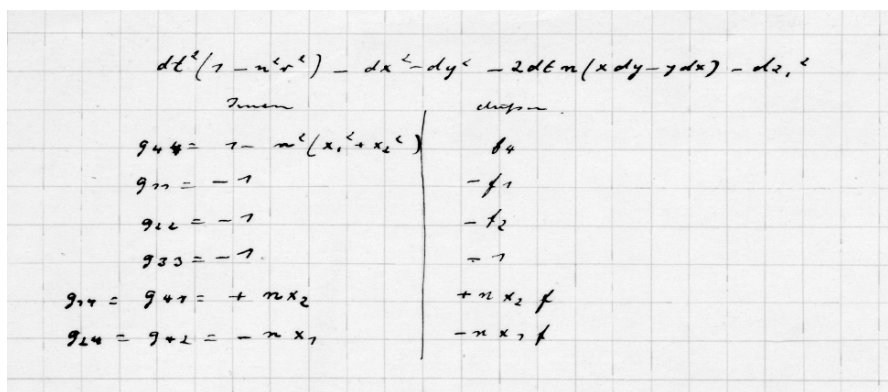 dt²(1 − n²r²) − dx² − dy² − 2dt n(x dy − y dx) − dz₁²
Innen
g₄₄ = 1 − n²(x₁² + x₂²) f₄
g₁₁ = − 1 − f₁
g₂₂ = − 1 − f₂
g₃₃ = − 1 − 1
g₁₄ = g₄₁ = + n x₂ + n x₂ f
g₂₄ = g₄₂ = − n x₁ − n x₁ f